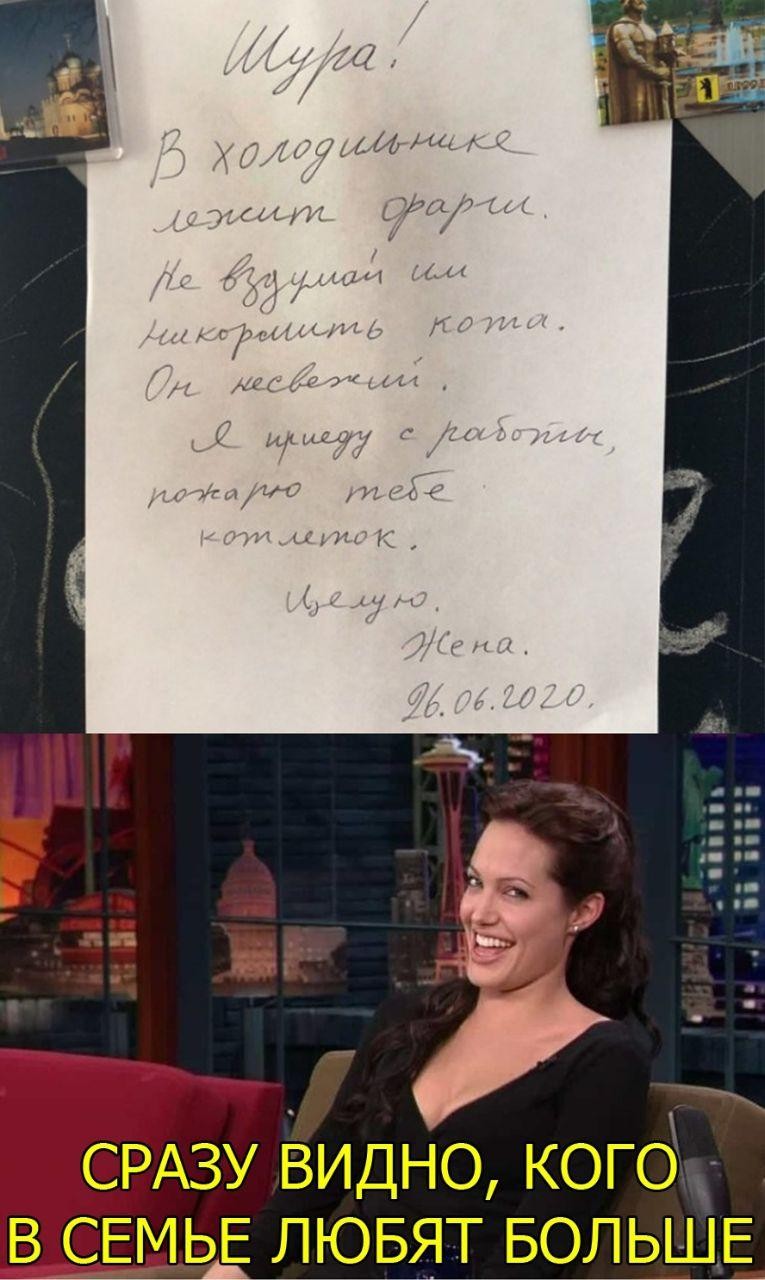 Шура!
В холодильнике
лежит фарш.
Не вздумай им
накормить кота.
Он несвежий.
Я приеду с работы,
пожарю тебе
котлеток.
Целую.
Жена.
26.06.2020.
СРАЗУ ВИДНО, КОГО
В СЕМЬЕ ЛЮБЯТ БОЛЬШЕ